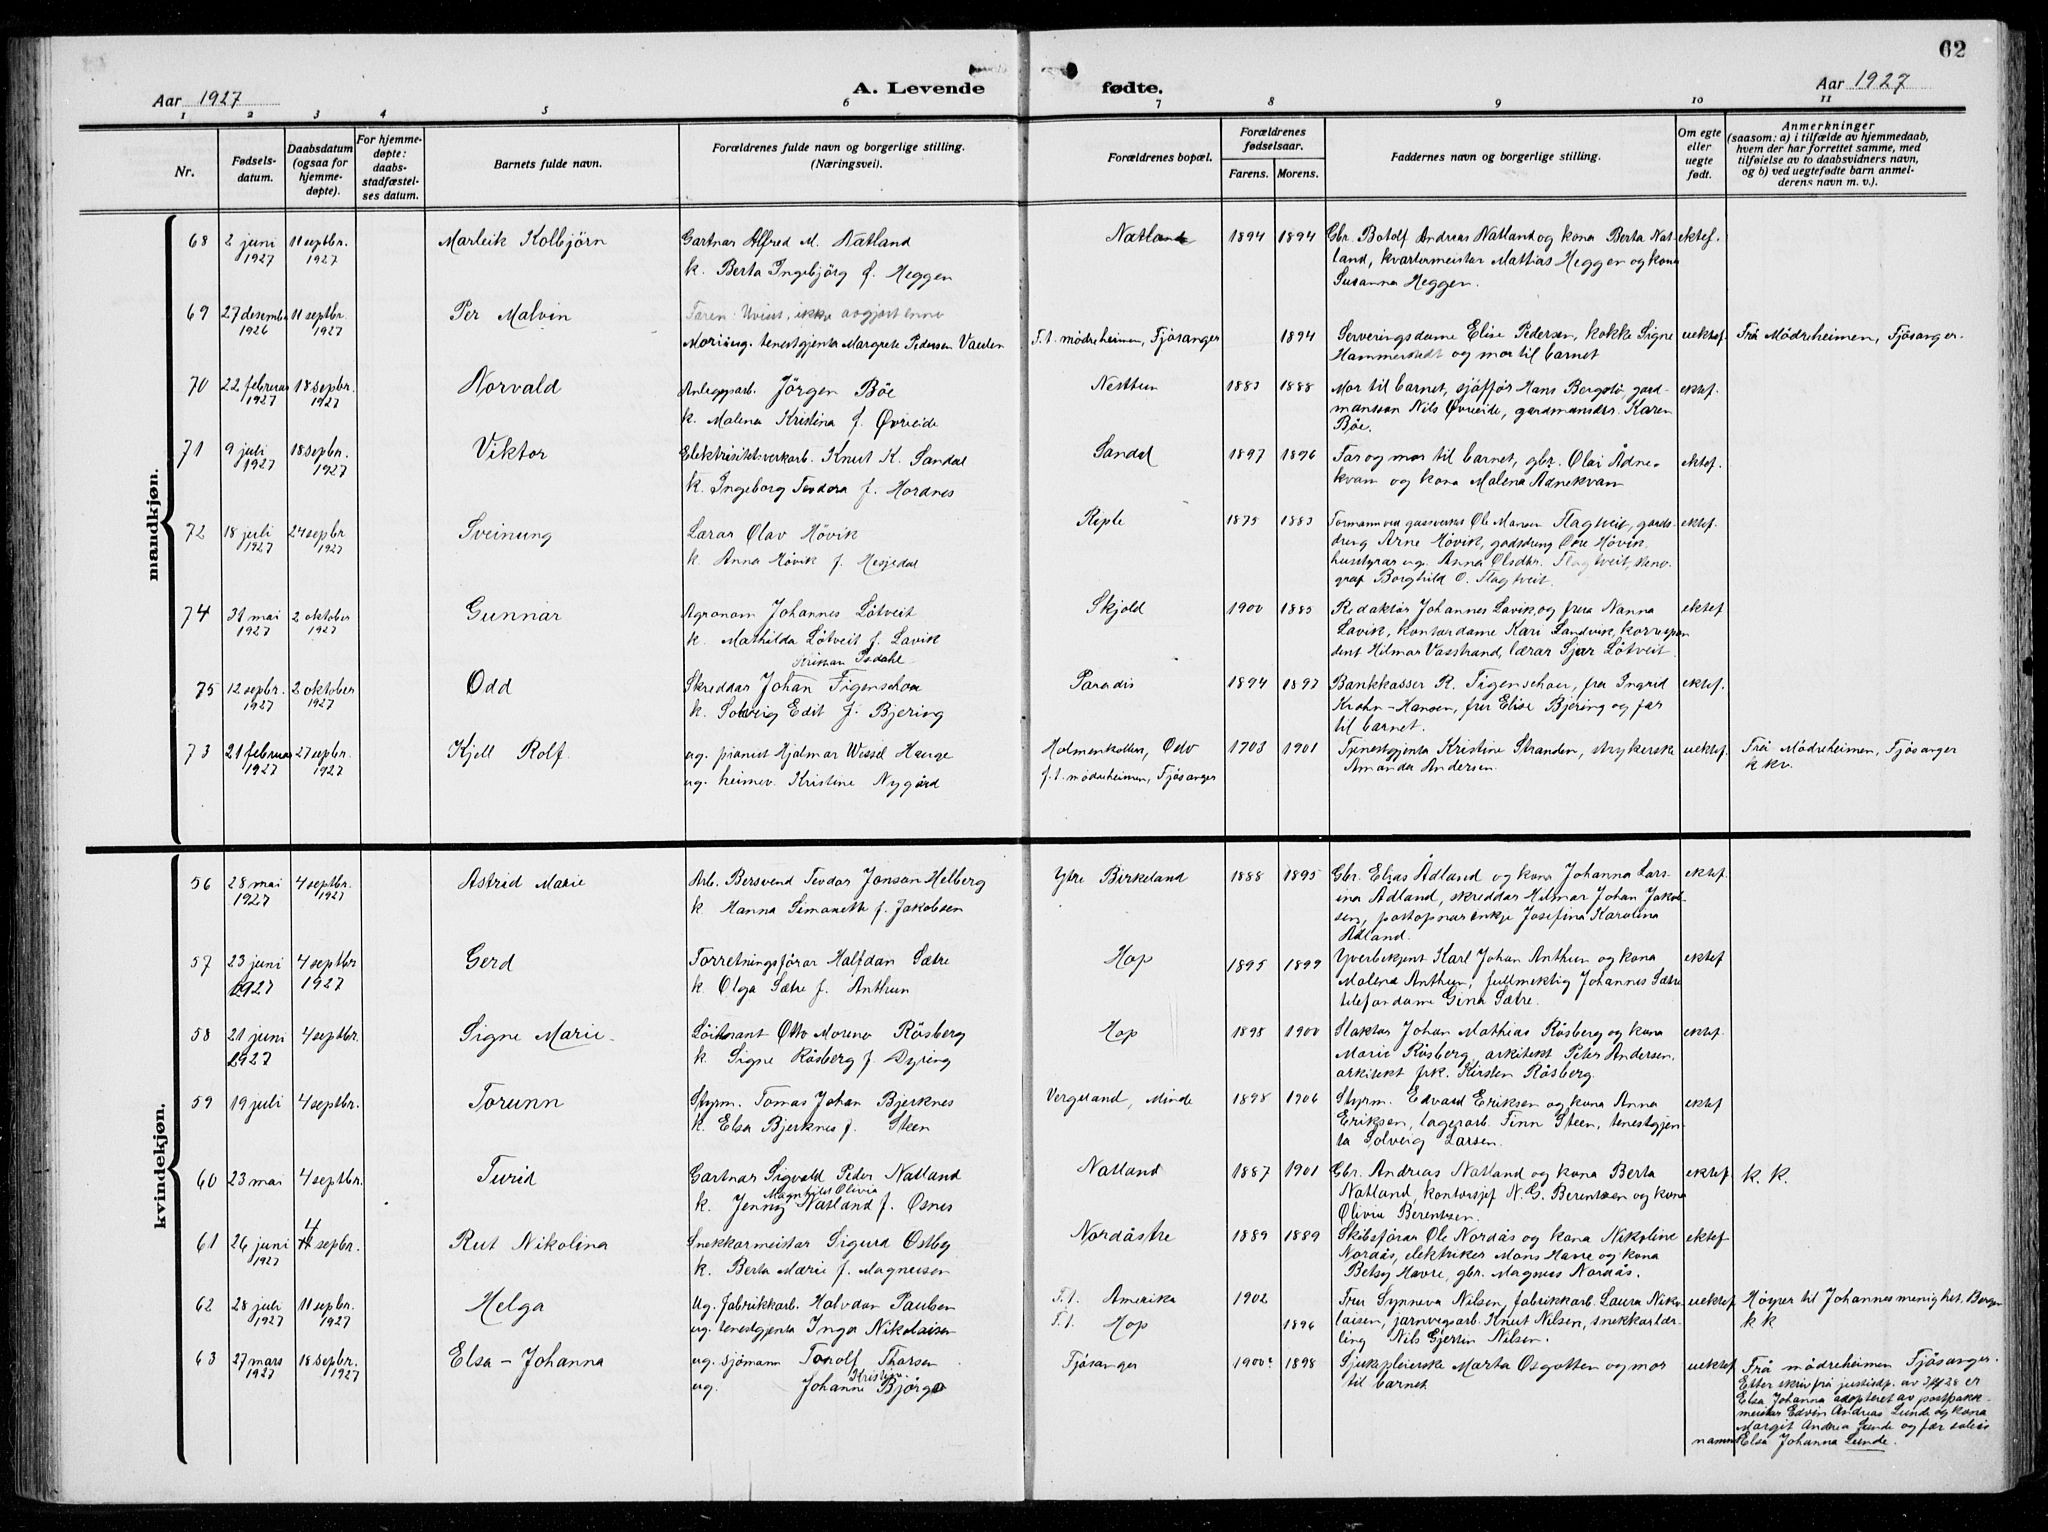 62
Aar 1927
A. Levende fødte.
Aar 1927
1 2 3 4 5 6 7 8 9 10 11
Nr.
Fødsels-
datum.
Daabsdatum
(ogsaa for
hjemme-
døpte).
For hjemme-
døpte:
daabs-
stadfæstel-
ses datum.
Barnets fulde navn.
Forældrenes fulde navn og borgerlige stilling.
(Næringsvei).
Forældrenes bopæl.
Forældrenes
fødselsaar.
Farens. Morens.
Faddernes navn og borgerlige stilling.
Om egte
eller
uegte
født.
Anmerkninger
(saasom: a) i tilfælde av hjemmedaab,
hvem der har forrettet samme, med
tilføielse av to daabsvidners navn,
og b) ved uegtefødte barn anmel-
derens navn m. v.).
mandkjøn.
68 2 juni 1927 11 septbr. 1927 Marleik Kolbjörn Gartnar Alfred M. Natland Natland 1894 1894 Gbr. Botolf Andreas Natland og kona Berta Nat- ektef.
k. Berta Ingebjörg f. Heggen land, kvartermeister Mattias Heggen og kona
Susanna Heggen.
69 27 desembr 1926 11 septbr. 1927 Per Malvin Faren: Uvisst, ikkje avgjort enno
Mori: ug. tenestgjenta Margrete Pedersen Vaulen F. t. mödreheimen, Fjösanger 1894 Serveringsdame Elise Pedersen, kokke Signe uektef. Frå Mödreheimen, Fjösanger.
Hammerstedt og mor til barnet
70 22 februar 1927 18 sepbr. 1927 Norvald Anleggsarb. Jörgen Böe Nesttun 1883 1888 Mor til barnet, sjåfför Hans Bergstö, gard- ektef.
k. Malena Kristina f. Øvreide mansson Nils Øvreide, gardmansdtr. Karen
Böe.
71 9 juli 1927 18 sepbr. 1927 Viktor Elektrisitetsverkarb. Knut K. Sandal Sandal 1897 1896 Far og mor til barnet, gbr. Olai Ådne- ektef.
k. Ingeborg Teodora f. Hordnes kvam og kona Malena Ådnekvam
72 18 juli 1927 24 sepbr 1927 Sveinung Lærar Olav Hövik Riple 1875 1883 Formann ved gassverket Ole Flagtveit, gards- ektef.
k. Anna Hövik f. Hesjedal dreng Arne Hövik, gardsdreng Hövik,
husstyrar ug. Anna Olsdtr. Flagtveit, steno-
graf Borghild O. Flagtveit.
74 31 mai 1927 2 oktober 1927 Gunnar Agronom Johannes Lötveit Skjold 1900 1883 Redaktör Johannes Lavik og frua Nanna ektef
k. Mathilda Lötveit f. Lavik Lavik, kontordame Kari Sandvik, korrespon
dent Hilmar Vasstrand, lærar Sjur Lötveit.
75 12 sepbr. 1927 2 oktober 1927 Odd Skreddar Johan Figenschou Paradis 1894 1897 Bankkasser R. Figenschou, fru Ingrid ektef.
k. Solveig Edit f. Bjering Krohn-Hansen, fru Elise Bjering og far
til barnet.
73 21 februar 1927 27 sepbr. 1927 Kjell Rolf. ug. pianist Hjalmar Wessel Hauge Holmenkollen, Oslo 1903 1901 Tjenestgjenta Kristine Stranden, strykerske uektef. Frå Mödreheimen, Fjösanger
ug. heimev. Kristine Nygård f. t. mödreheimen, Fjösanger Amanda Andersen. k kv.
kvindekjøn.
56 28 mai 1927 4 septbr. 1927 Astrid Marie Arb. Bersvend Teodor Jonson Helberg Ytre Birkeland 1888 1895 Gbr. Elias Ådland og kona Johanna Lars- ektef.
k. Hanna Simonette f. Jakobsen ina Ådland, skreddar Hilmar Johan Jakob-
sen, postopnar enkje Josefina Karolina
Ådland.
57 23 juni 1927 4 septbr 1927 Gerd Forretningsförar Halfdan Sætre Hop 1895 1899 Yverbetjent Karl Johan Anthun og kona ektef
k. Olga Sætre f. Anthun Malena Anthun, fullmektig Johannes Sætre
telefondame Gina Sætre.
58 21 juni 1927 4 septbr. Signe Marie Löitnant Otto Moreno Rösberg Hop 1898 1900 Slaktar Johan Mathias Rösberg og kona ektef.
k. Signe Rösberg f. Dyring Marie Rösberg, arkitekt Peter Andersen,
arkitekt frk. Kirsten Rösberg.
59 19 juli 4 septbr. Torunn Styrm. Tomas Johan Bjerknes Vergeland, Minde 1898 1906 Styrm. Edvard Eriksen og kona Anna ektef
k. Elsa Bjerknes f. Steen Eriksen, lagerarb. Finn Steen, tenestgjen
ta Solveig Larsen.
60 23 mai 4 septbr. Turid Gartnar Sigvald Peder Natland Natland 1887 1901 Gbr. Andreas Natland og kona Berta ektef. k. k.
k. Jenny Magnhild Olivia Natland f. Osnes Natland, kontorsjef N. G. Berentsen og kona
Olivia Berentsen.
61 26 juni 1927 4 sepbr. Rut Nikolina Snekkarmeistar Sigurd Østby Nordåstre 1889 1889 Skibsförar Ole Nordås og kona Nikoline ektef
k. Berta Marie f. Magnussen Nordås, elektriker Mons Havre og kona
Betsy Havre, gbr. Magnus Nordås.
62 28 juli 1927 11 sepbr. 1927 Helga Ug. fabrikkarb. Halvdan Paulsen F. t. Amerika 1902 Frue Synneva Nilsen, fabrikkarb. Laura Niko- uektef Höyrer til Johannesmenighet, Bergen
ug. tenestgjenta Inga Nikolaisen F. t. Hop 1896 laisen, jarnvegsarb. Knut Nilsen, snekkarlær- k k
ling Nils Gjertin Nilsen.
63 27 mars 1927 18 sepbr. 1927 Elsa-Johanna ug. sjömann Torolf Thorsen Fjösanger 1900? 1898 Sjukepleierske Marta Osgotten og mor uektef Frå mödreheimen Fjösanger.
ug. Johanne Kristine Björge til barnet Etter skriv frå justisdp. av er
Elsa Johanna adopteret av postpakk-
meister Edvin Andreas Lunde og kona
Margit Andrea Lunde og fær soleis
namnet Elsa Johanna Lunde.